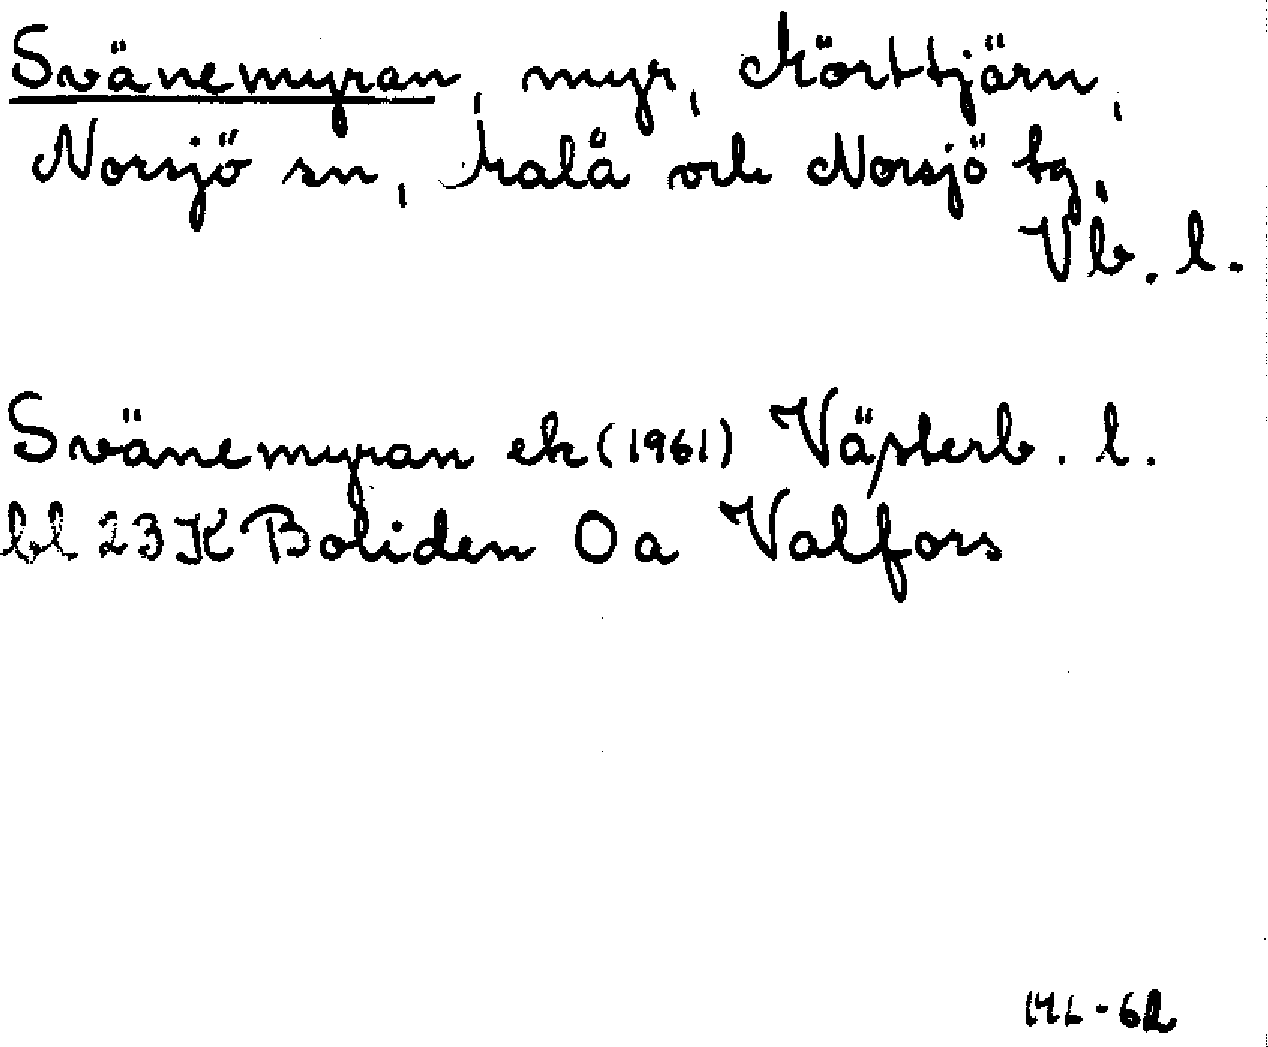 Svänemyran, myr, Mörttjärn,
Norsjö sn, Malå och Norsjö tg,
Vb. l.
Svänemyran ek (1961) Västerb. l.
bl 23K Boliden 0a Valfors
ML-62